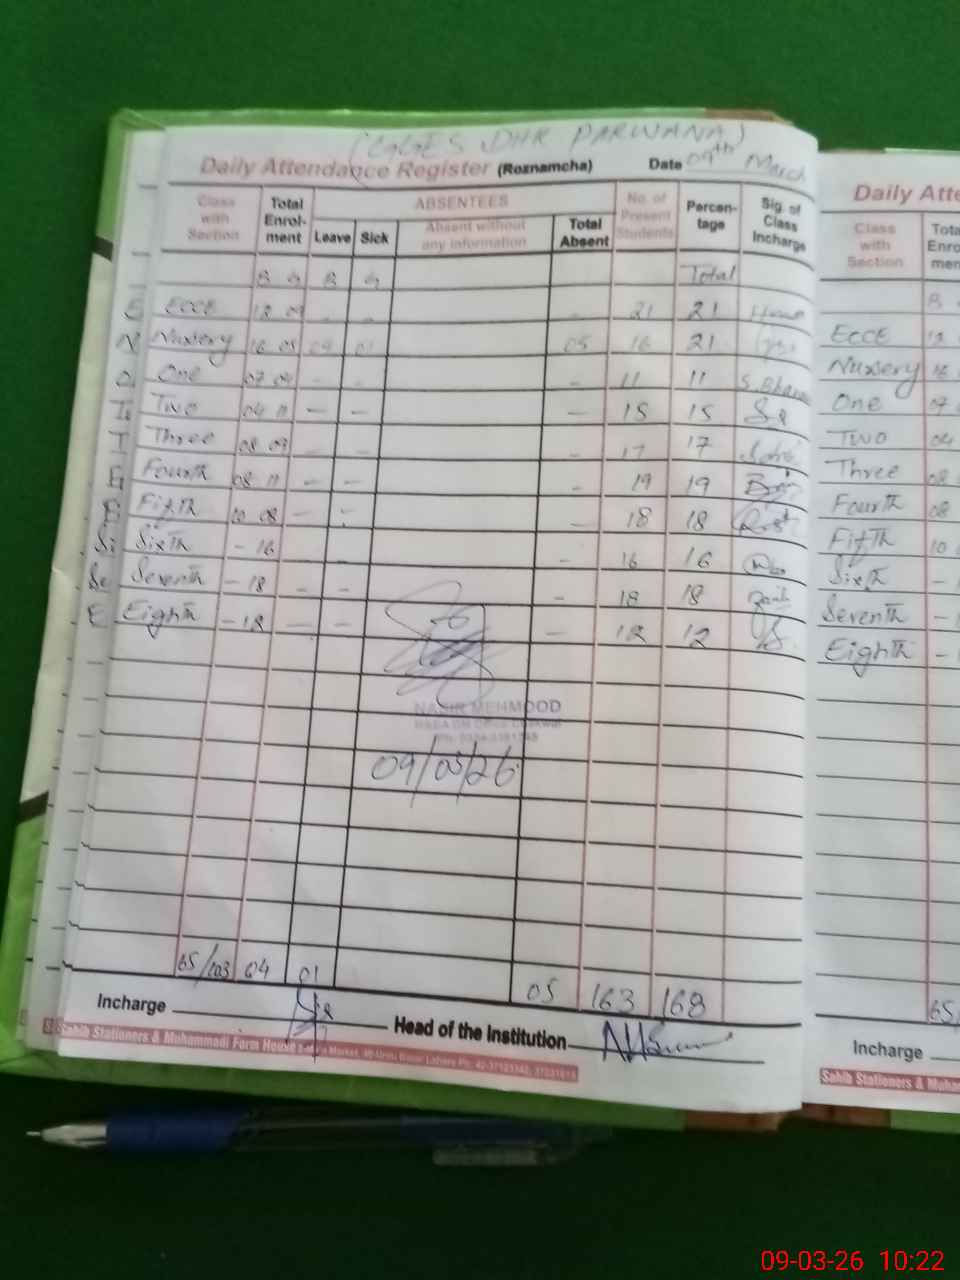 (GGES DHR PARWANA)
Daily Attendance Register (Roznamcha) Date 09th March
Class with Section Total Enrol-ment ABSENTEES Leave Sick Absent without any information Total Absent No. of Present Students Percen-tage Sig. of Class Incharge
B G B G Total
E ECCE 12 09 - - - 21 21
N Nursery 16 05 04 01 05 16 21
O One 07 04 - - - 11 11
T Two 04 11 - - - 15 15
T Three 08 09 - - - 17 17
F Fourth 08 11 - - - 19 19
F Fifth 10 08 - - - 18 18
Si Sixth - 16 - 16 16
Se Seventh - 18 - - - 18 18
E Eighth - 12 - - - 12 12
NASIR MEHMOOD
09/03/26
65/103 04 01 05 163 168
Incharge Head of the Institution
Sahib Stationers & Muhammadi Form House
Daily Atte
Class with Section Tota Enro men
B
ECCE 12
Nursery 16
One 07
Two 04
Three 08
Fourth 08
Fifth 10
Sixth -
Seventh -
Eighth -
65/
Incharge
Sahib Stationers & Muha
09-03-26 10:22